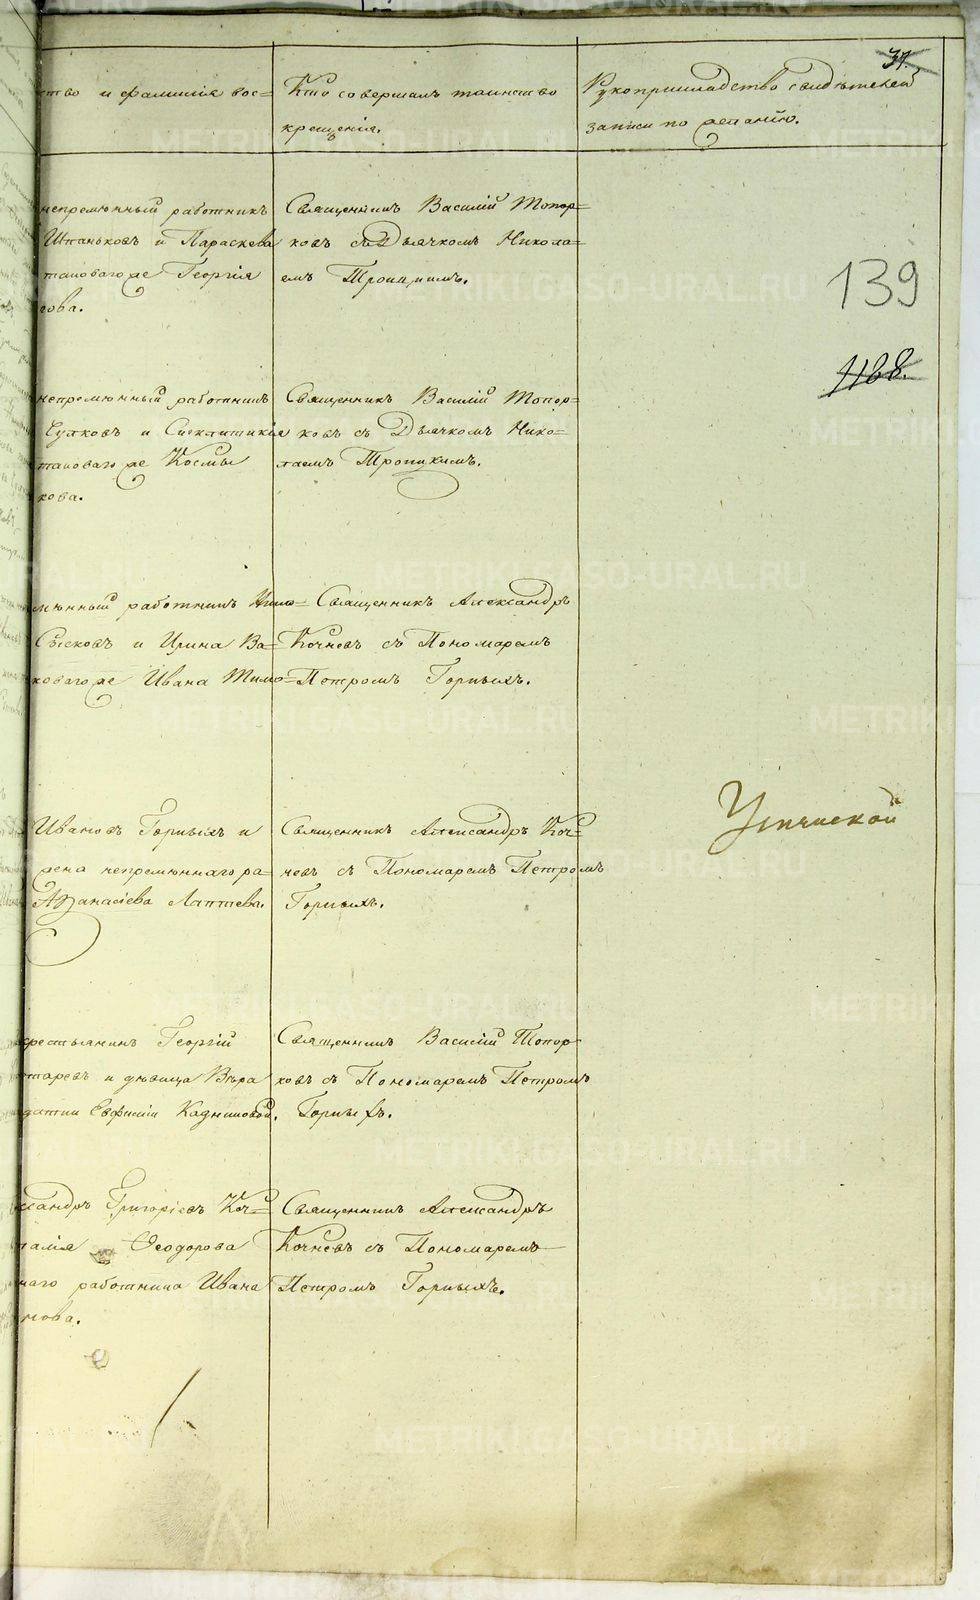 37.
ство и фамилія вос=
Кто совершалъ таинство
крещенія.
Рукоприкладство свидѣтелей
записи по желанію.
непремѣнный работникъ
Шпаньковъ и Параскева
тановаго же Георгія
кова.
Священникъ Василій Топор=
ковъ съ Дьячкомъ Никола=
емъ Троицкимъ.
139
1168.
непремѣнный работникъ
Сулковъ и Синклитикія
тановаго же Космы
кова.
Священникъ Василій Топор=
ковъ съ Дьячкомъ Нико=
лаемъ Троицкимъ.
мѣнный работникъ
Сысковъ и Ирина Ва=
коваго же Ивана Тимо=
Священникъ Александръ
Кочневъ съ Пономаремъ
Петромъ Горныхъ.
Ивановъ Горныхъ и
жена непремѣннаго ра=
Аѳанасіева Лаптева.
Священникъ Александръ Коч=
невъ съ Пономаремъ Петромъ
Горныхъ.
крестьянинъ Георгій
старевъ и дѣвица Вѣра
Евфиміи Кадниковой.
Священникъ Василій Топор
ковъ съ Пономаремъ Петромъ
Горныхъ.
ксандръ Григоріевъ Коч=
талія Ѳеодорова
наго работника Ивана
нова.
Священникъ Александръ
Кочневъ съ Пономаремъ
Петромъ Горныхъ.
METRIKI.GASO-URAL.RU